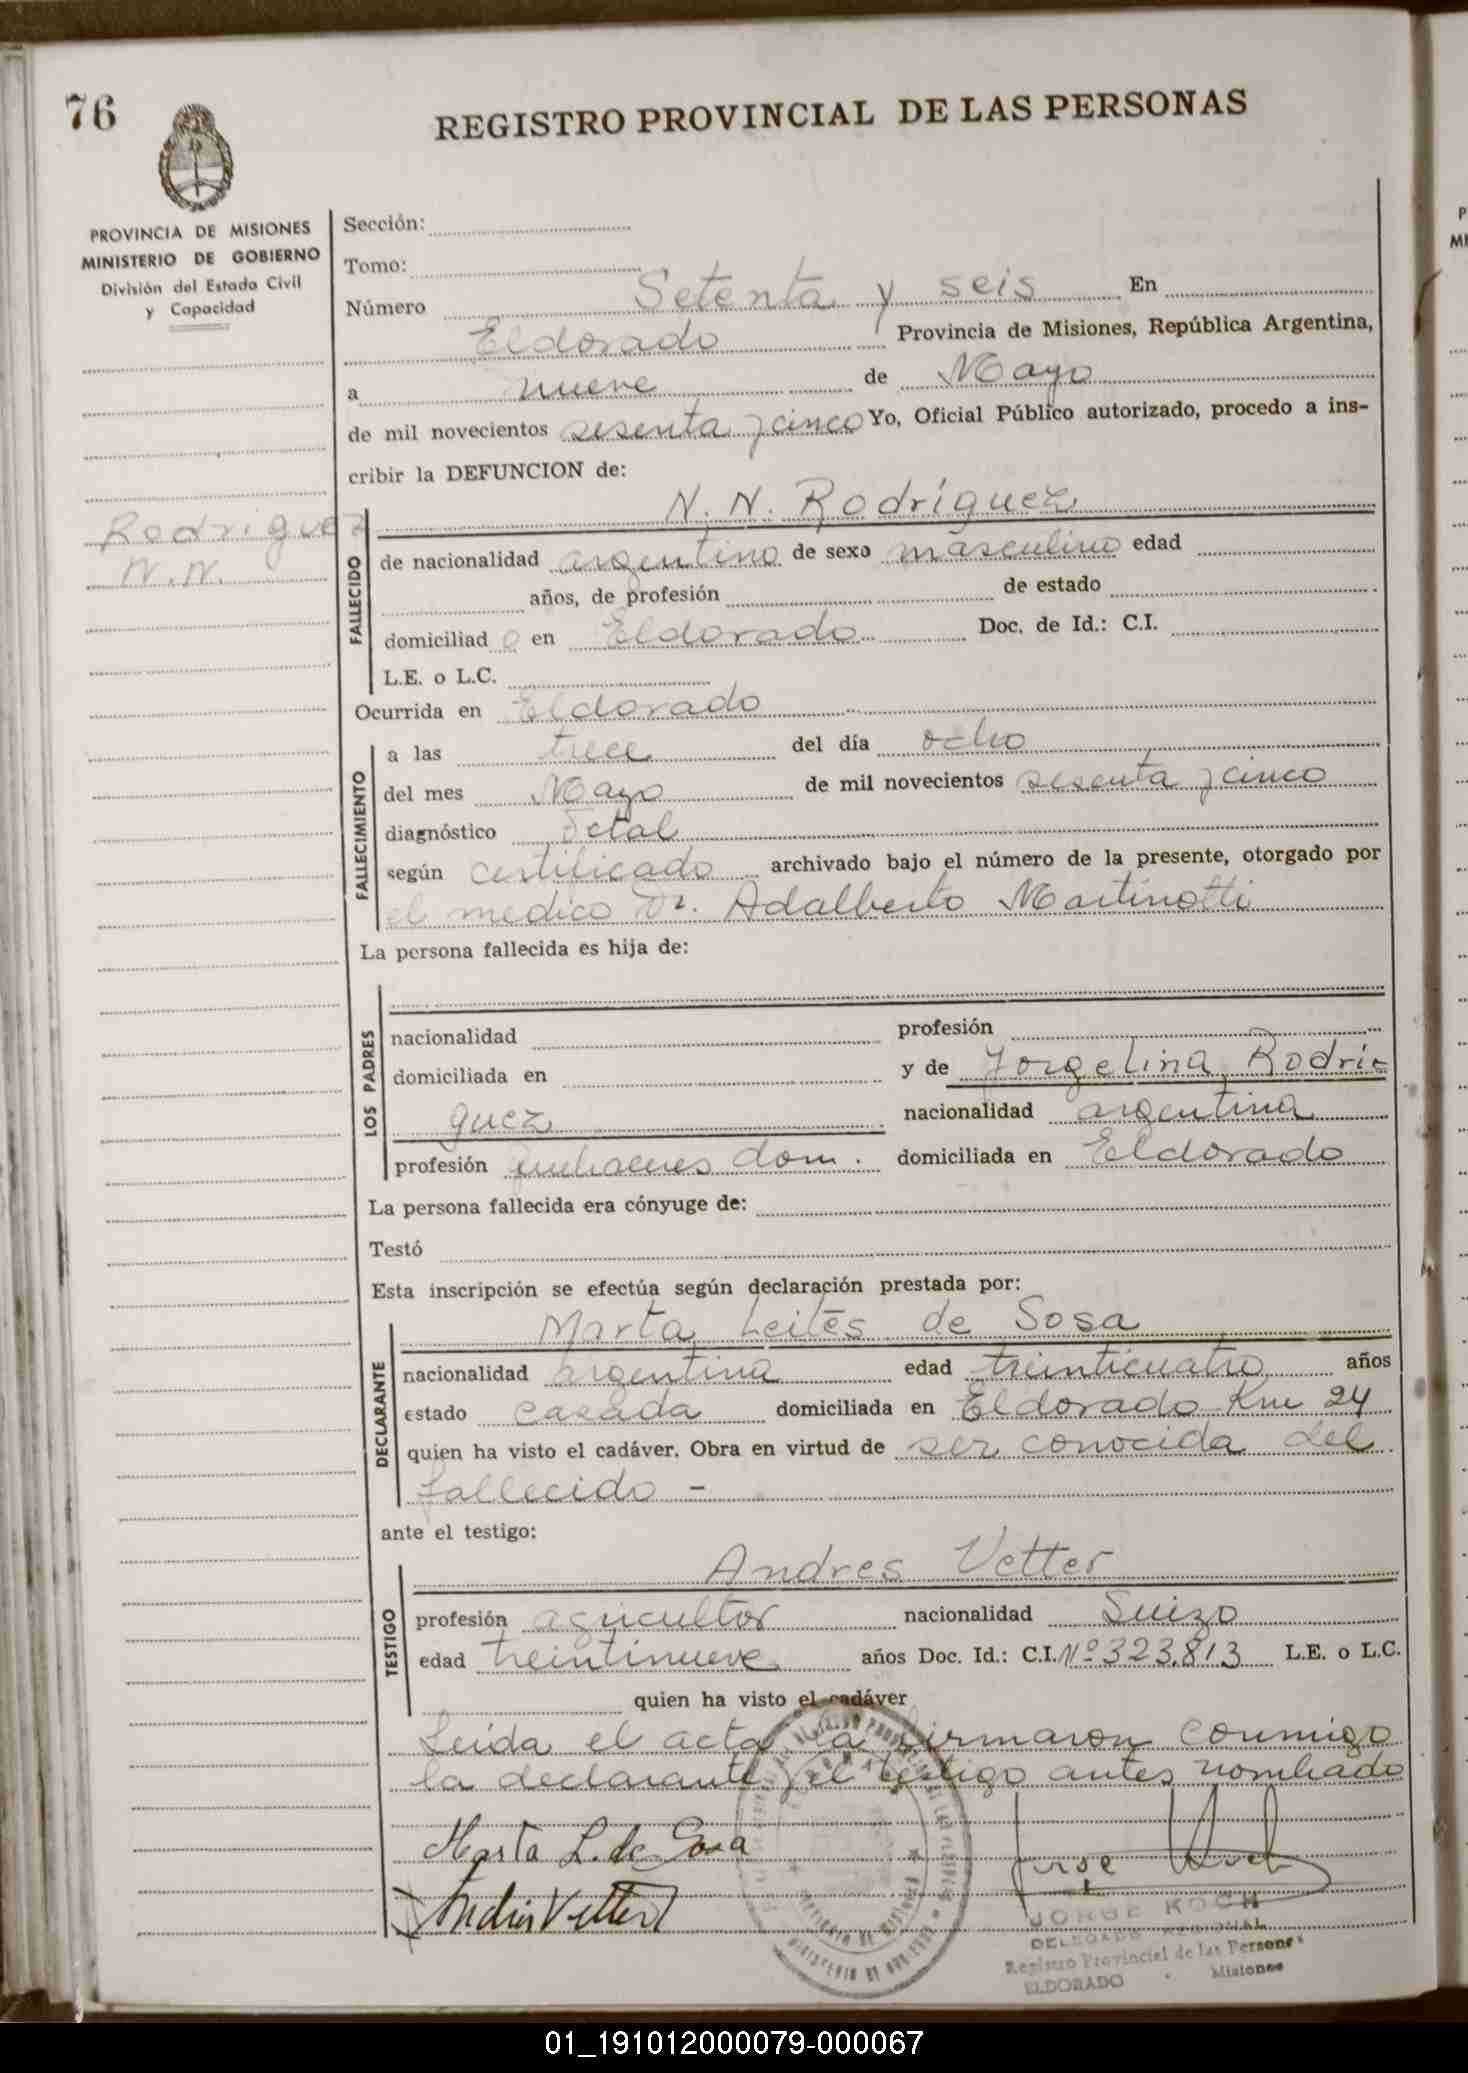 76
REGISTRO PROVINCIAL DE LAS PERSONAS
PROVINCIA DE MISIONES
MINISTERIO DE GOBIERNO
División del Estado Civil
y Capacidad
Sección:
Tomo:
Número Setenta y seis En
Eldorado Provincia de Misiones, República Argentina,
a nueve de Mayo
de mil novecientos sesenta y cinco Yo, Oficial Público autorizado, procedo a ins-
cribir la DEFUNCION de:
N. N. Rodríguez
Rodriguez
N.N.
FALLECIDO
de nacionalidad argentino de sexo masculino edad
años, de profesión de estado
domiciliad o en Eldorado Doc. de Id.: C.I.
L.E. o L.C.
Ocurrida en Eldorado
FALLECIMIENTO
a las trece del día ocho
del mes Mayo de mil novecientos sesenta y cinco
diagnóstico Fetal
según certificado archivado bajo el número de la presente, otorgado por
el medico Dr. Adalberto Martinotti
La persona fallecida es hija de:
LOS PADRES
nacionalidad profesión
domiciliada en y de Jorgelina Rodrí-
guez nacionalidad argentina
profesión quehaceres dom. domiciliada en Eldorado
La persona fallecida era cónyuge de:
Testó
Esta inscripción se efectúa según declaración prestada por:
DECLARANTE
Marta Leites de Sosa
nacionalidad argentina edad treinticuatro años
estado casada domiciliada en Eldorado Km 24
quien ha visto el cadáver. Obra en virtud de ser conocida del
fallecido -
ante el testigo:
TESTIGO
Andres Vetter
profesión agricultor nacionalidad Suizo
edad treintinueve años Doc. Id.: C.I. Nº 323.813 L.E. o L.C.
quien ha visto el cadáver
Leída el acta la firmaron conmigo
la declarante y el testigo antes nombrado
Marta L. de Sosa
Andrés Vetter
Jorge Koch
JORGE KOCH
DELEGADO REGIONAL
Registro Provincial de las Personas
ELDORADO - Misiones
01_191012000079-000067